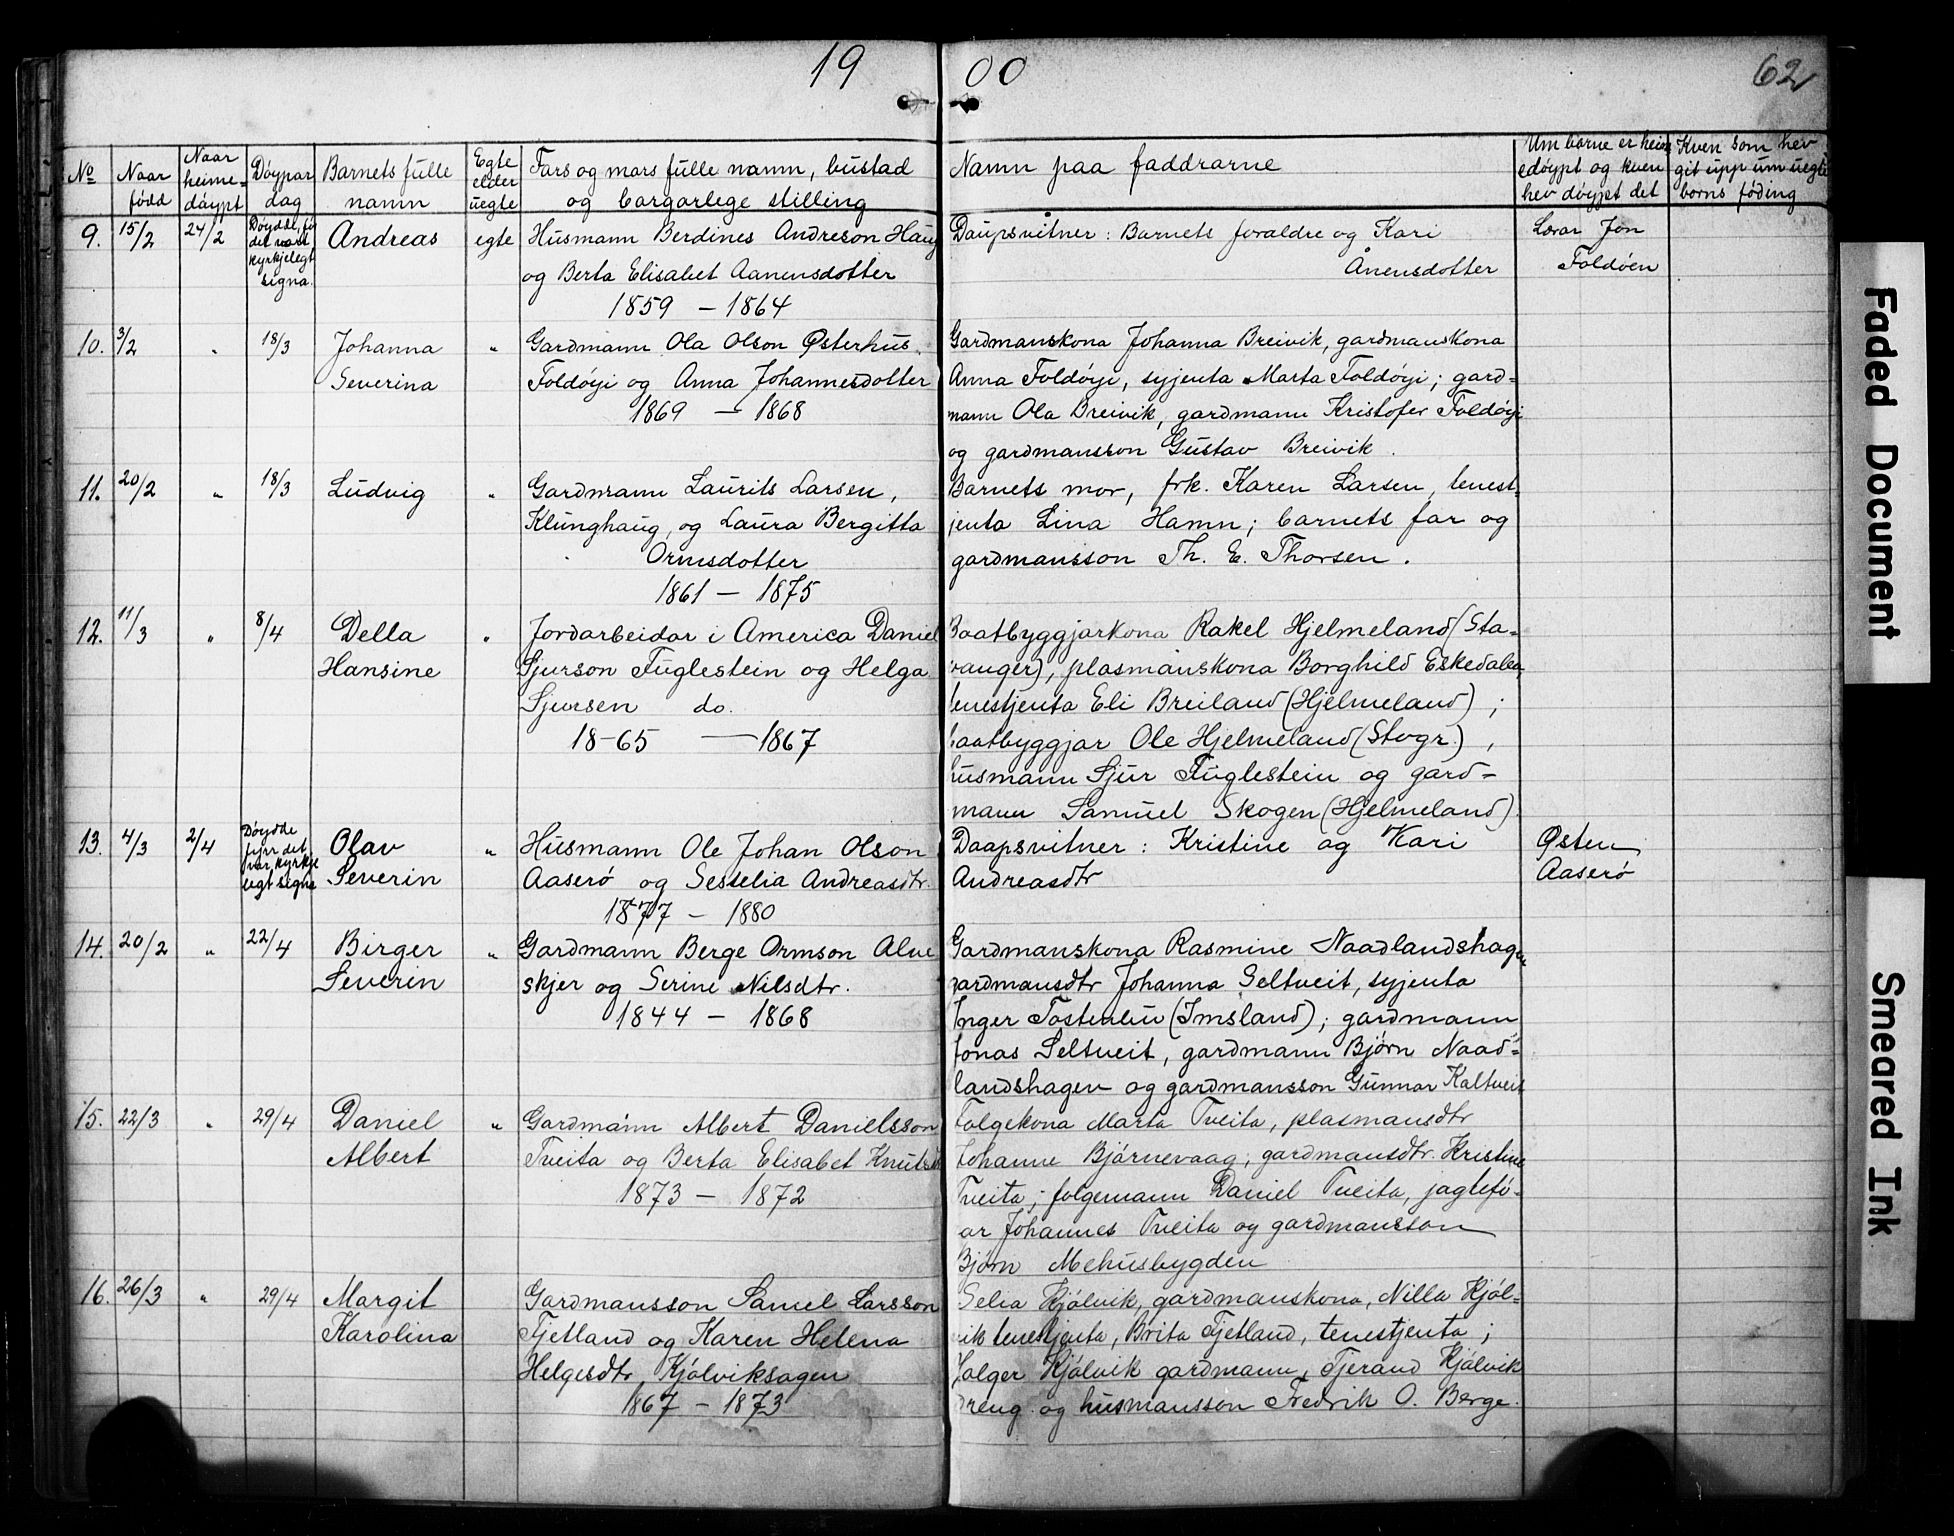 19 00 62
No Naar fødd Naar heime-døypt Døypar dag Barnets fulle namn Egte elder uegte Fars og mors fulle namn, bustad og borgarlege stilling Namn paa faddrarne Um barne er heimedøypt og kven hev døypt det Kven som hev git upp um uegte borns føding
9. 15/2 24/2 Døydde, fyr det vart kyrkjelegt signa. Andreas egte Husmann Berdines Andreson Haug Daupsvitner: Barnets foraldre og Kari Lærar Jon
og Berta Elisabet Aanensdotter Ånensdotter Foldøen
1859 – 1864
10. 3/2 " 18/3 Johanna " Gardmann Ola Olson Østerhus, Gardmanskona Johanna Breivik, gardmanskona
Severina Foldøyi og Anna Johannesdotter Anna Foldøyi, syjenta Marta Foldøyi; gard=
1869 – 1868 mann Ola Breivik, gardmann Kristofer Foldøyi
og gardmansson Gustav Breivik.
11. 20/2 " 18/3 Ludvig " Gardmann Laurits Larsen, Barnets mor, frk. Karen Larsen, tenest=
Klunghaug, og Laura Bergitta jenta Lina Hamn; barnets far og
Ormsdotter gardmansson Th. E. Thorsen.
1861 – 1875
12. 11/3 " 8/4 Della " Jordarbeidar i America Daniel Baatbyggjarkona Rakel Hjelmeland (Sta=
Hansine Sjurson Fuglestein og Helga vanger), plasmanskona Borghild Eskedalen,
Sjursen do. tenestjenta Eli Breiland (Hjelmeland);
18-65 – 1867 baatbyggjar Ole Hjelmeland (Stvgr.),
husmann Sjur Fuglestein og gard-
mann Samuel Skogen (Hjelmeland).
13. 4/3 2/4 Døydde fyrr det var kyrkjelegt signa Olav " Husmann Ole Johan Olson Daapsvitner: Kristine og Kari Østen
Severin Aaserø og Sesselia Andreasdtr. Andreasdtr Aaserø
1877 – 1880
14. 20/2 " 22/4 Birger " Gardmann Berge Ormson Alve Gardmanskona Rasmine Naadlandshagen,
Severin skjer og Serine Nilsdtr. gardmansdtr Johanna Seltveit, syjenta
1844 – 1868 Inger Tostenlin (Imsland); gardmann
Jonas Seltveit, gardmann Bjørn Naad=
landshagen og gardmansson Gunnar Kaltveit
15. 22/3 " 29/4 Daniel " Gardmann Albert Danielsson Folgekona Marta Tveita, plasmansdtr
Albert Tveita og Berta Elisabet Knutsd Johanne Bjørnevaag, gardmansdtr. Kristine
1873 – 1872 Tveita; folgemann Daniel Tveita, jagtefø-
ar Johannes Tveita og gardmansson
Bjørn Mehusbygden
16. 26/3 " 29/4 Margit Gardmansson Samel Larsson Selia Kjølvik, gardmanskona, Nilla Kjøl=
Karolina Tjetland og Karen Helena vik tenestjenta, Brita Tjetland, tenestjenta;
Helgesdtr, Kjølviksagen Holger Kjølvik gardmann, Tjerand Kjølvik
1867 – 1873 dreng og husmansson Fredrik O. Berge.
Faded Document
Smeared Ink